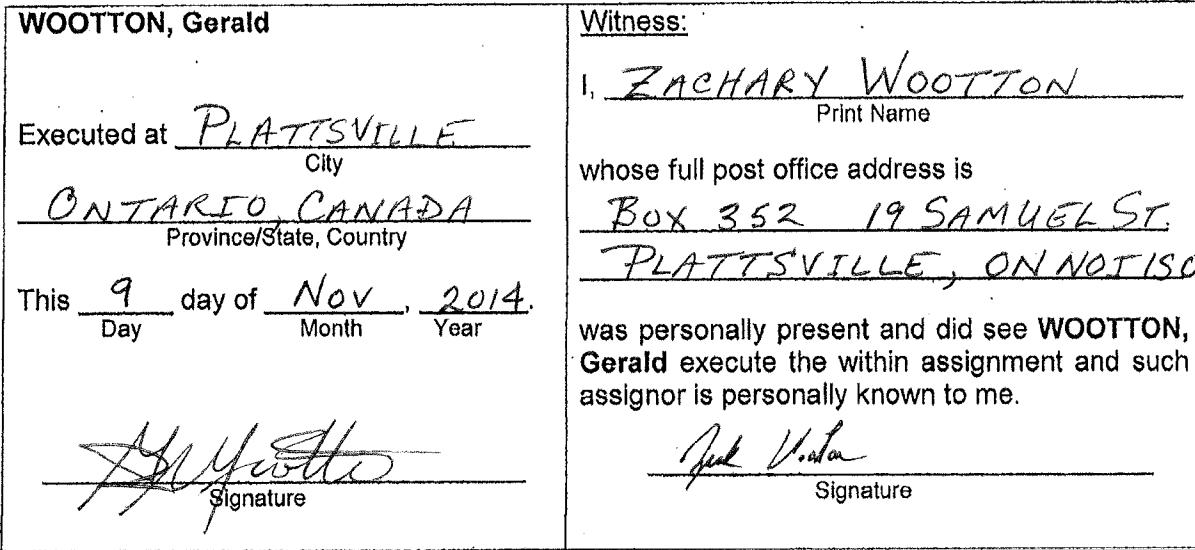 WOOTTON, Gerald
Executed at PLATTSVILLE
City
ONTARIO, CANADA
Province/State, Country
This 9 day of NOV, 2014.
Day Month Year
Signature
Witness:
I, ZACHARY WOOTTON
Print Name
whose full post office address is
BOX 352 19 SAMUEL ST.
PLATTSVILLE, ON N0J1S0
was personally present and did see WOOTTON,
Gerald execute the within assignment and such
assignor is personally known to me.
Signature